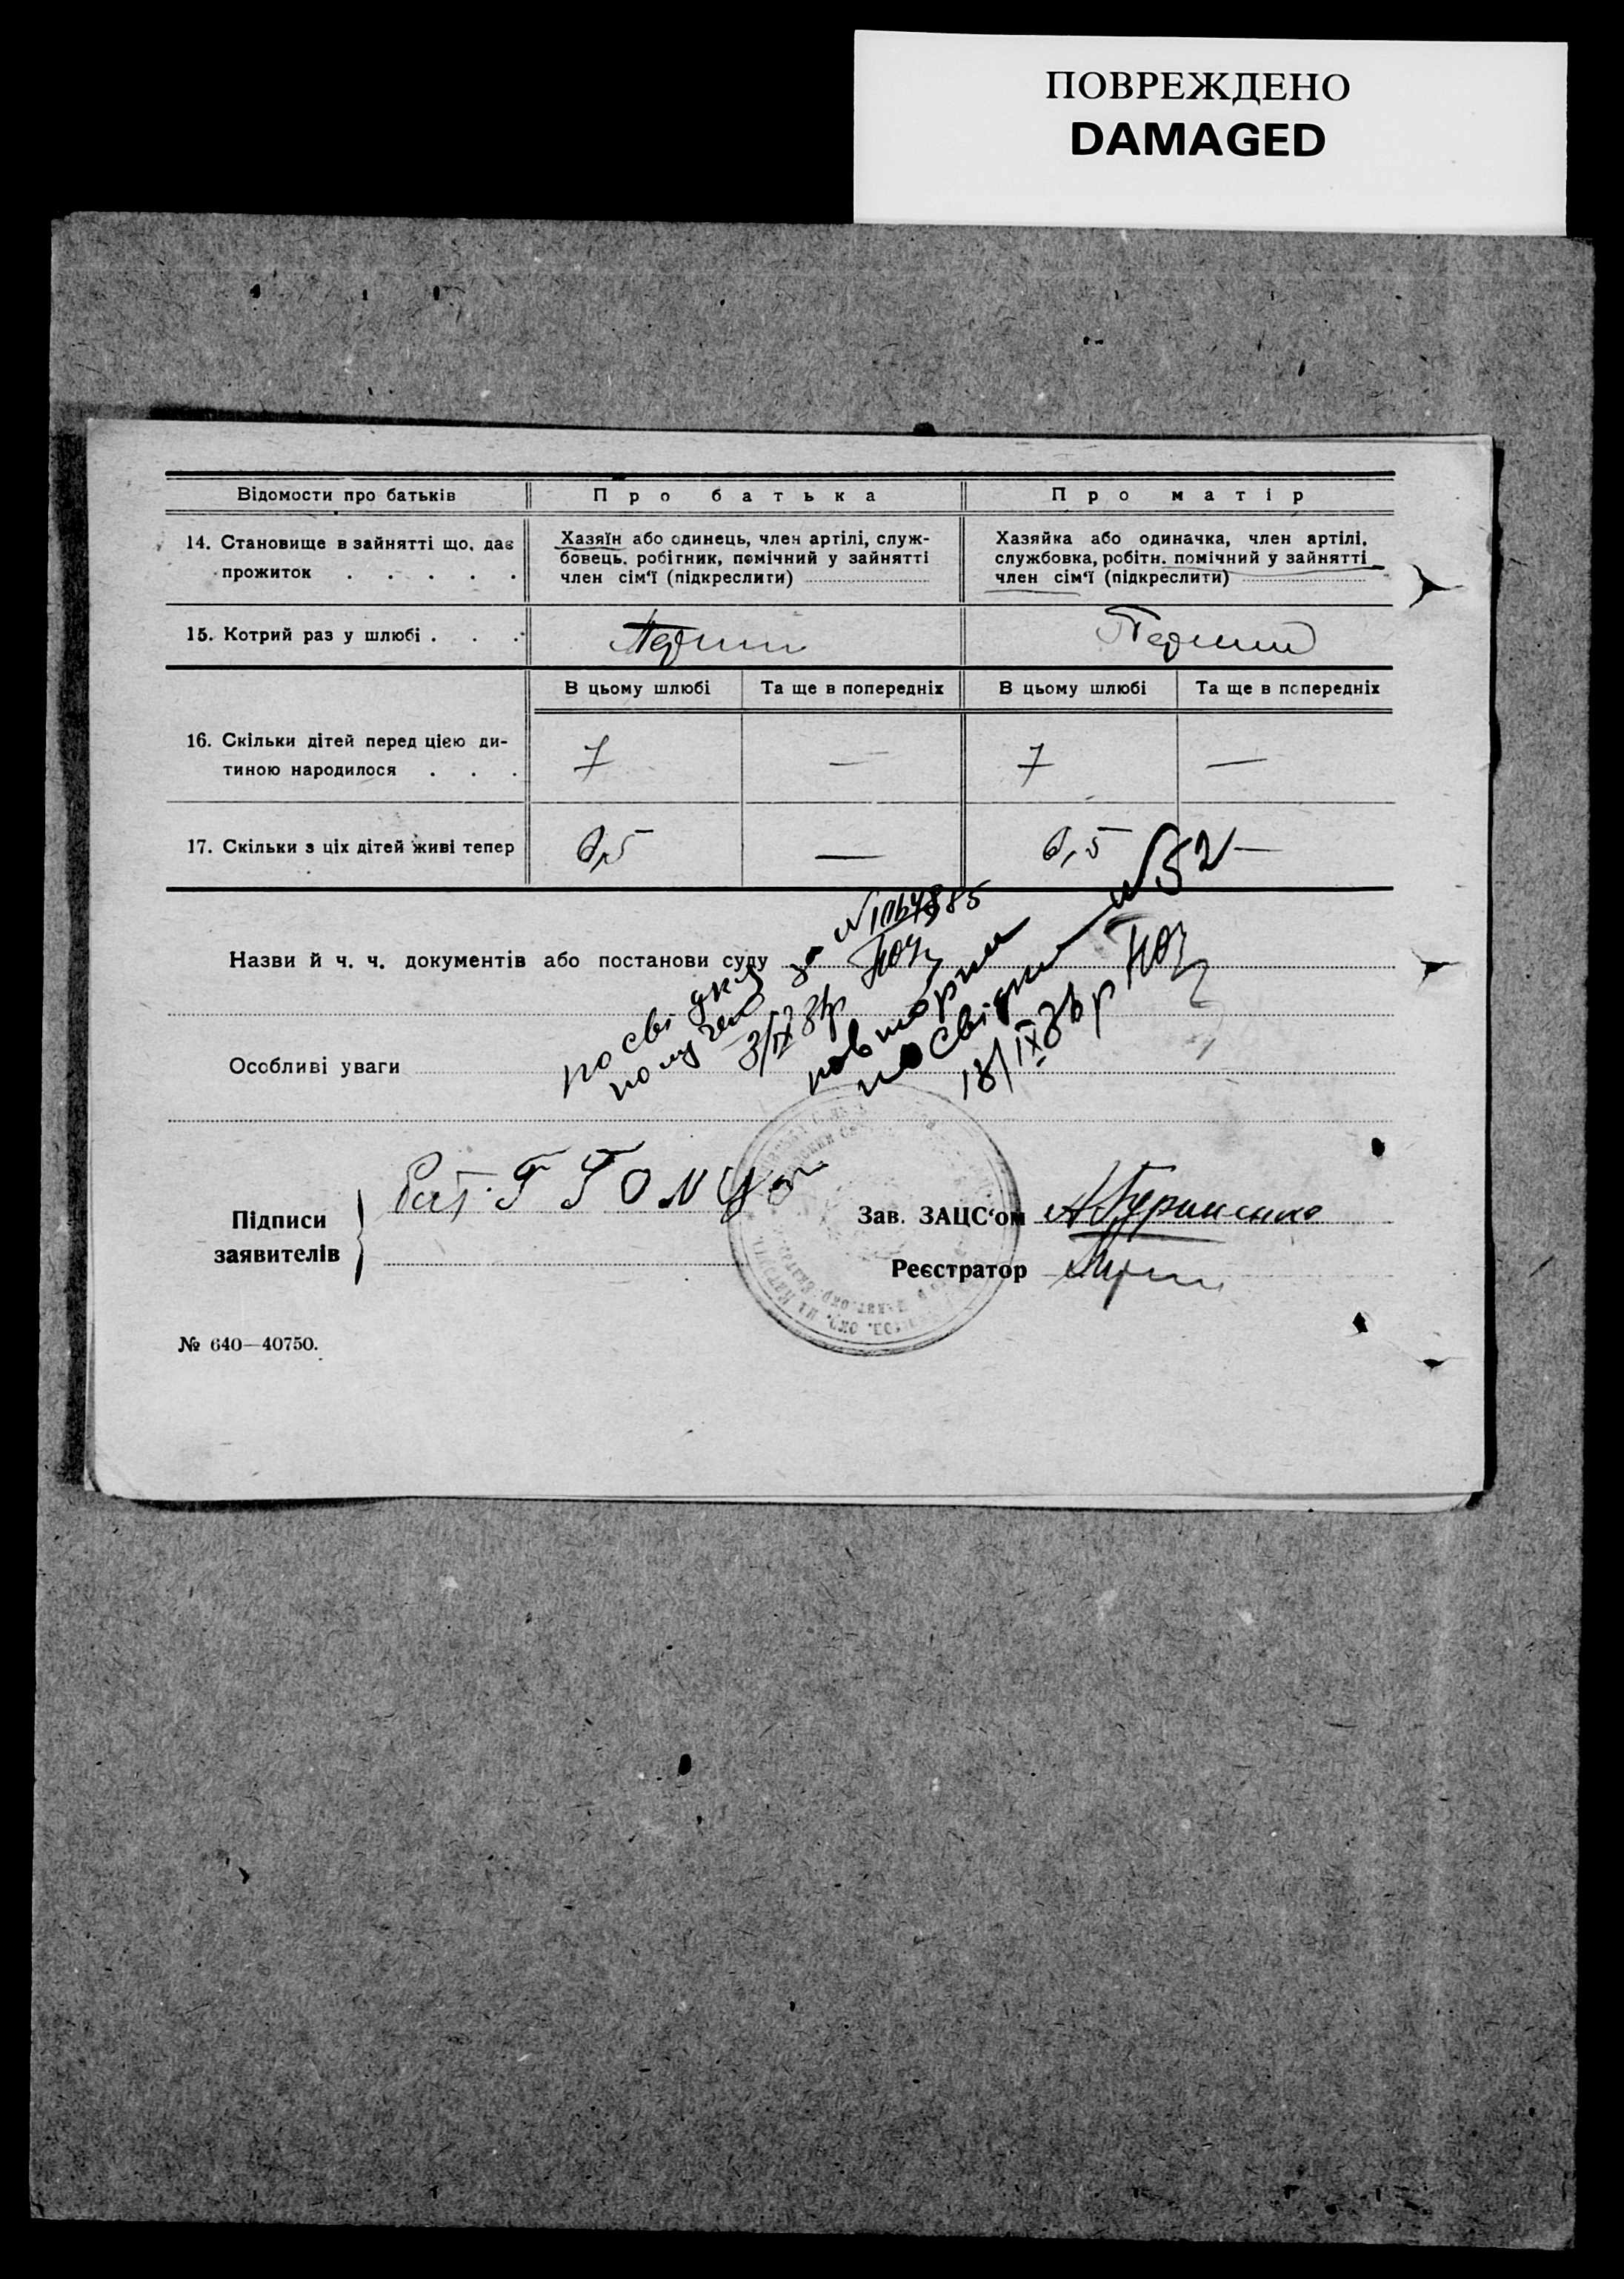 ПОВРЕЖДЕНО
DAMAGED
Відомости про батьків
Про батька
Про матір
14. Становище в зайнятті що, дає прожиток . . . . .
Хазяїн або одинець, член артілі, служ-
бовець, робітник, помічний у зайнятті
член сім'ї (підкреслити)
Хазяйка або одиначка, член артілі,
службовка, робітн. помічний у зайнятті
член сім'ї (підкреслити)
15. Котрий раз у шлюбі . . .
Перший
Перший
В цьому шлюбі
Та ще в попередніх
В цьому шлюбі
Та ще в попередніх
16. Скільки дітей перед цією ди-
тиною народилося . . .
7
—
7
—
17. Скільки з ціх дітей живі тепер
5
—
5
—
Назви й ч. ч. документів або постанови суду
Особливі уваги
посвідку
за №
3/IX 3 р
повторни
посвідки № 52
18/IX 3 р
Підписи
заявителів
Бат. Г
Зав. ЗАЦС'ом
Реєстратор
№ 640—40750.